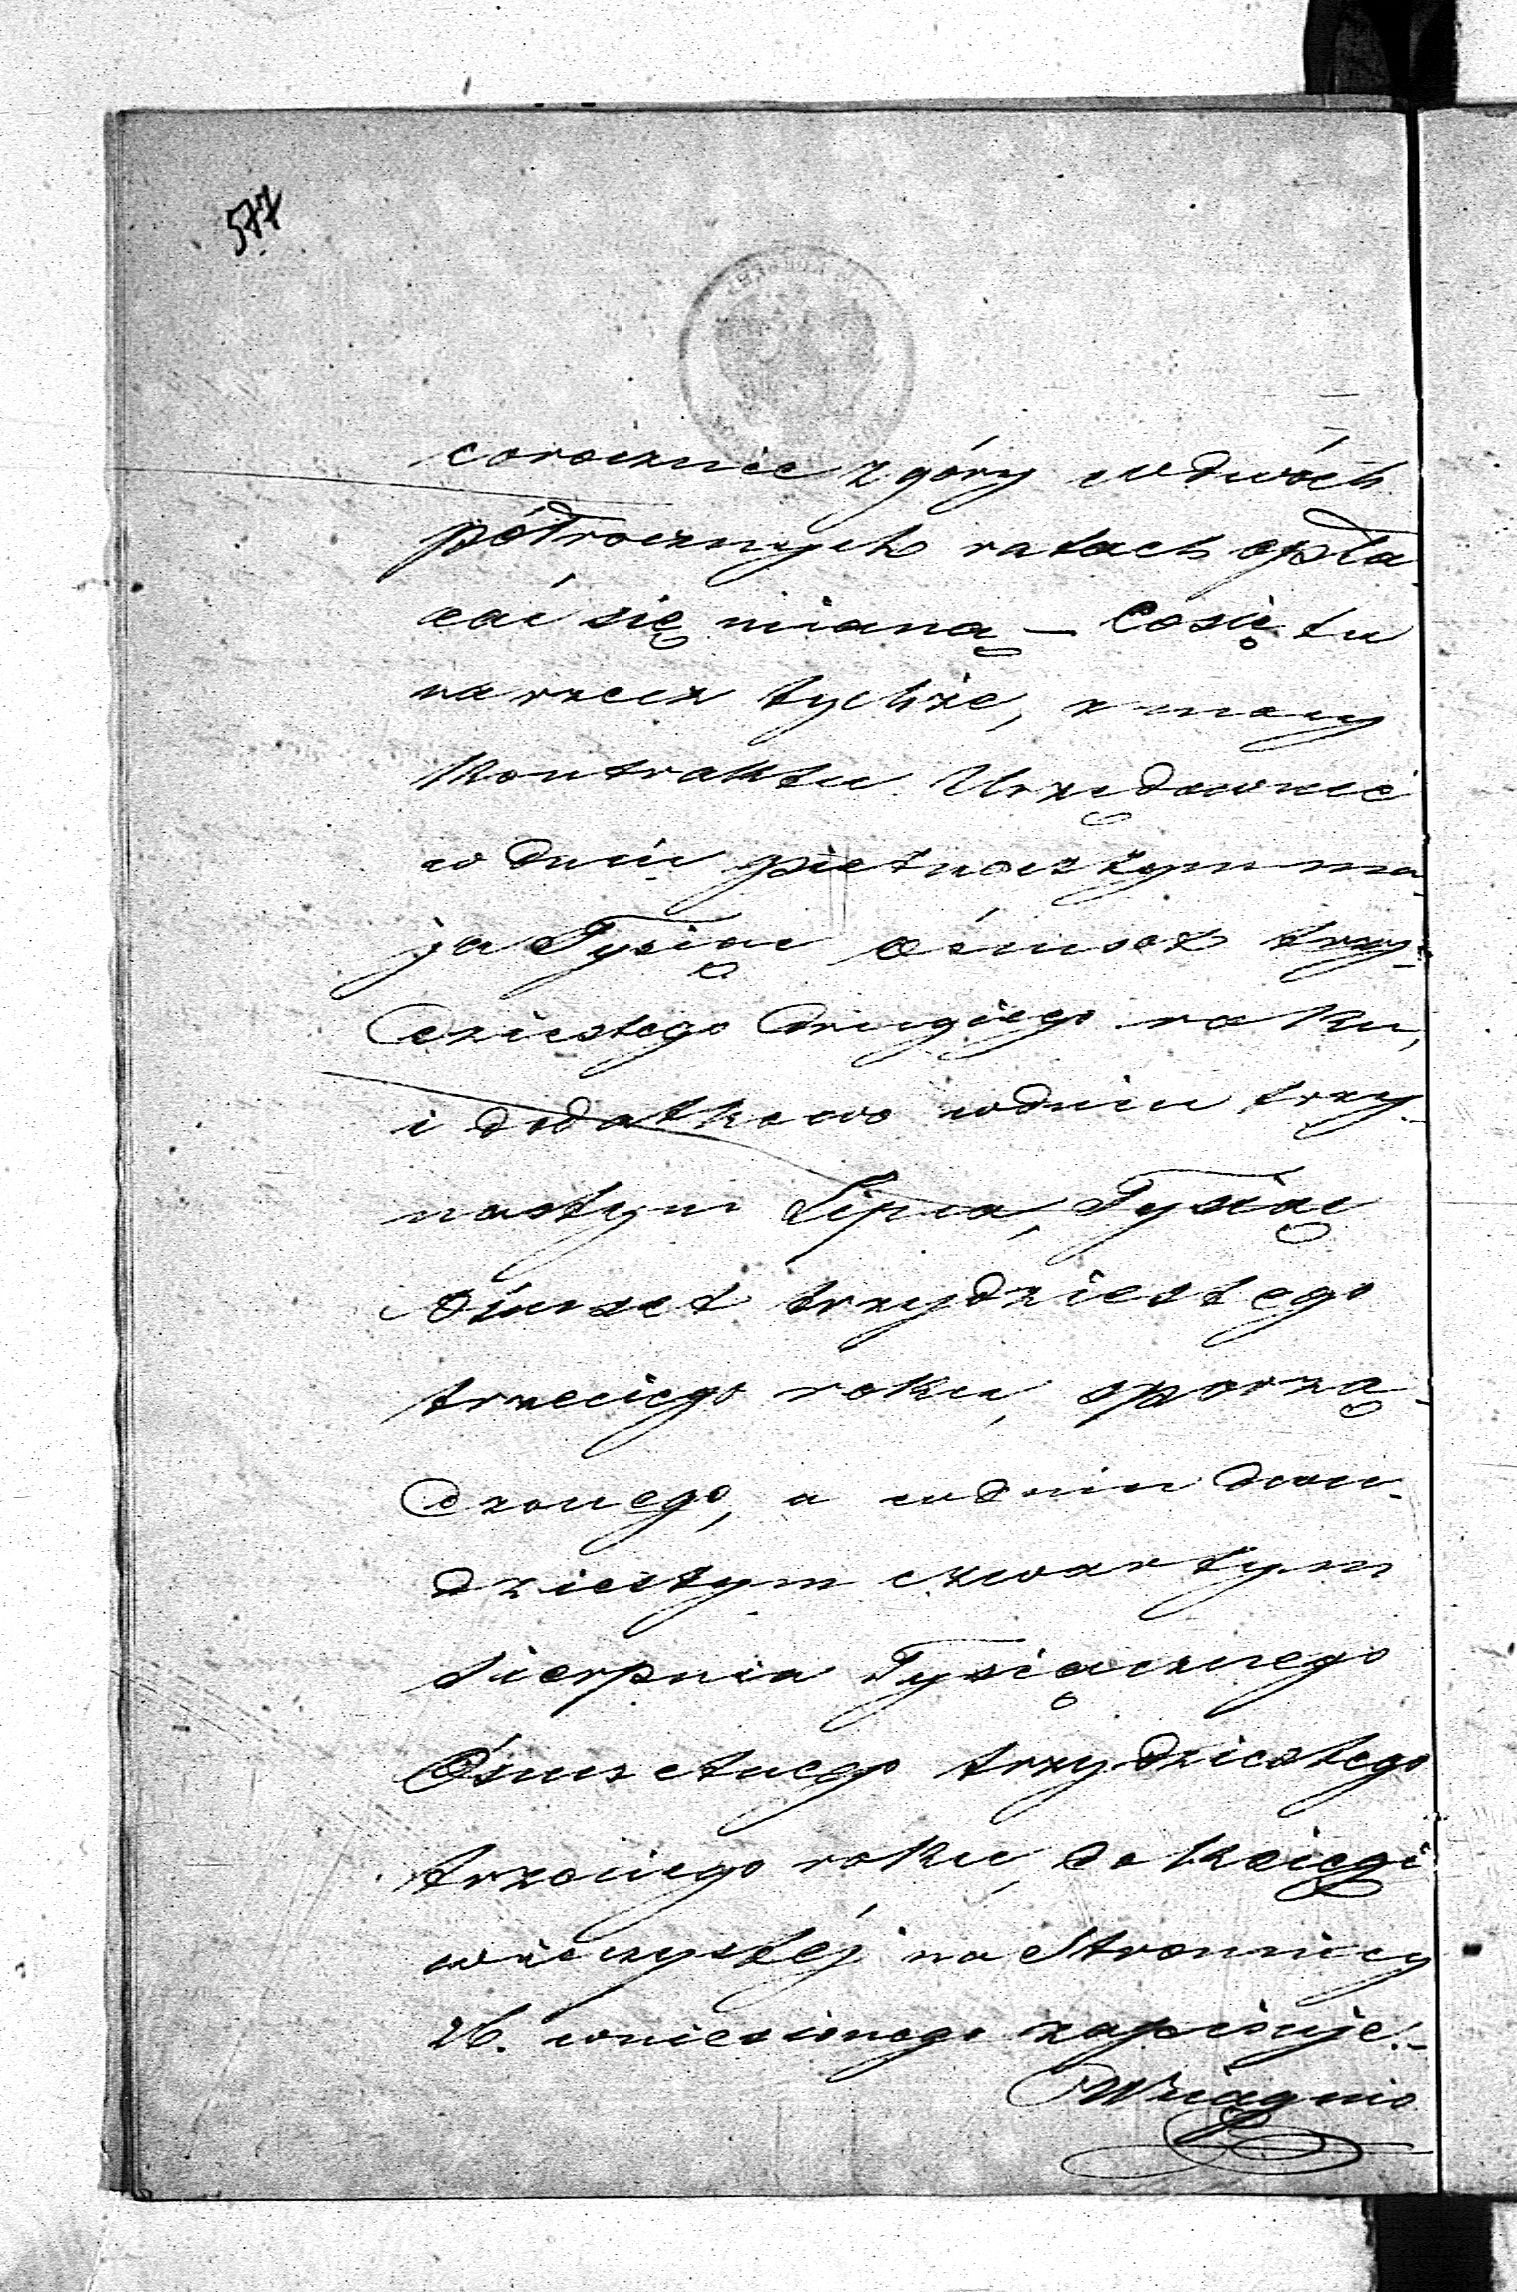 577
corocznie z góry w dwóch
półrocznych ratach opła-
cać się mianą – Co się tu
na rzecz tychże, z mocy
Kontraktu Urzędownie
w dniu pietnastym ma-
ja Tysiąc ośmset trzy-
dziestego drugiego roku,
i dodatkowo w dniu trzy-
nastym Lipca, Tysiąc
Ośmset trzydziestego
trzeciego roku, sporzą-
dzonego, a w dniu dwu-
dziestym czwartym
Sierpnia Tysiącznego
Ośmsetnego trzydziestego
trzeciego roku, do Księgi
wieczystéj na Stronnicy
26. wniesionego zapisuje.–